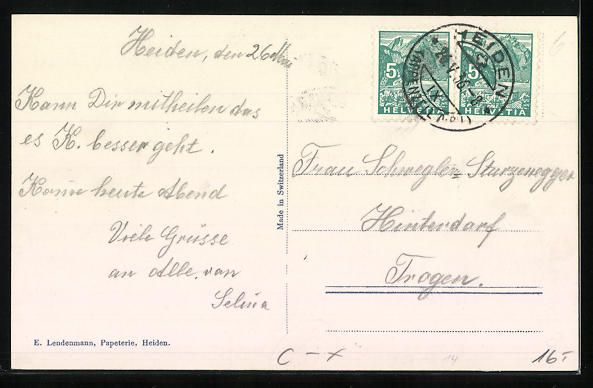 Heiden, den 26. Mai
Kann Dir mitheilen das
es K. besser geht.
Komme heute Abend
Viele Grüsse
an Alle. von
Selina
E. Lendenmann, Papeterie, Heiden.
Made in Switzerland
5
HELVETIA
5
HELVETIA
HEIDEN
Frau Schwegler-Sturzenegger
Hinterdorf
Trogen.
C - x
16.-
6